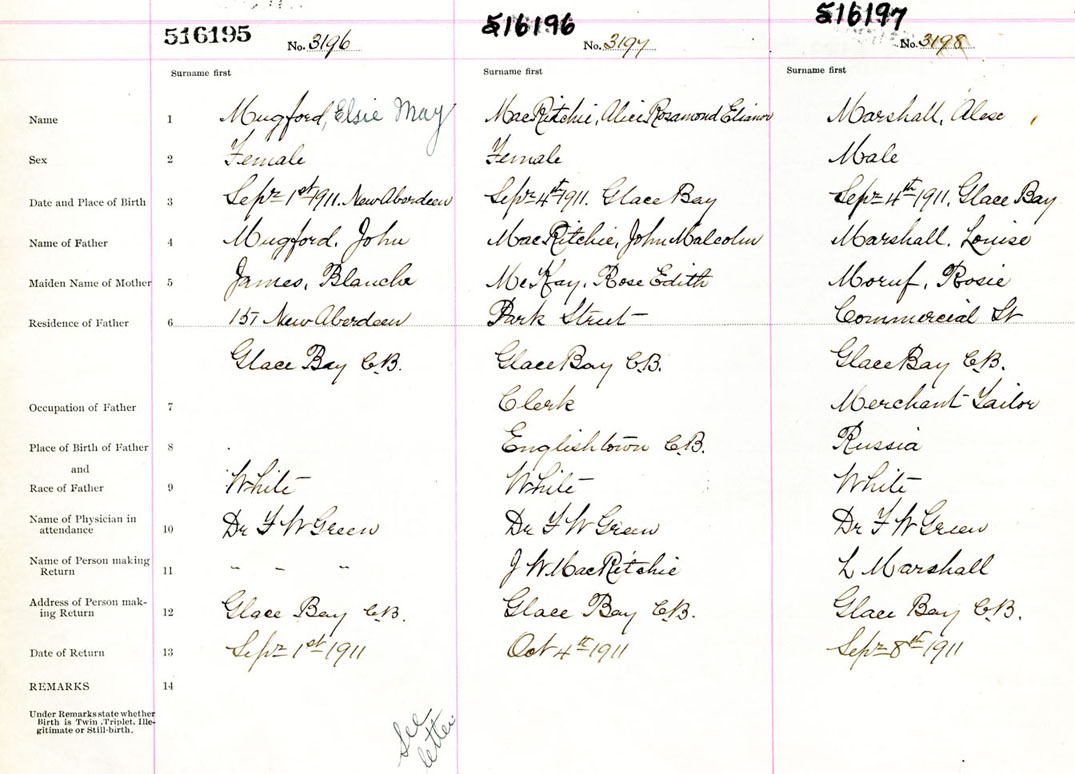 516195 No. 3196 516196 No. 3197 516197 No. 3198
Surname first Surname first Surname first
Name 1 Mugford, Elsie May MacRitchie, Alice Rosamond Elianor Marshall, Alese
Sex 2 Female Female Male
Date and Place of Birth 3 Sept 1st 1911. New Aberdeen Sept 4th 1911. Glace Bay Sept 4th 1911. Glace Bay
Name of Father 4 Mugford, John MacRitchie, John Malcolm Marshall, Louise
Maiden Name of Mother 5 James, Blanche McKay, Rose Edith Moruf, Rosie
Residence of Father 6 157 New Aberdeen Park Street Commercial St
Glace Bay C.B. Glace Bay C.B. Glace Bay C.B.
Occupation of Father 7 Clerk Merchant Tailor
Place of Birth of Father 8 Englishtown C.B. Russia
and
Race of Father 9 White White White
Name of Physician in
attendance 10 Dr F W Green Dr F W Green Dr F W Green
Name of Person making
Return 11 " " " J W MacRitchie L Marshall
Address of Person mak-
ing Return 12 Glace Bay C.B. Glace Bay C.B. Glace Bay C.B.
Date of Return 13 Sept 1st 1911 Oct 4th 1911 Sept 8th 1911
REMARKS 14
Under Remarks state whether
Birth is Twin, Triplet, Ille-
gitimate or Still-birth.
See
letter